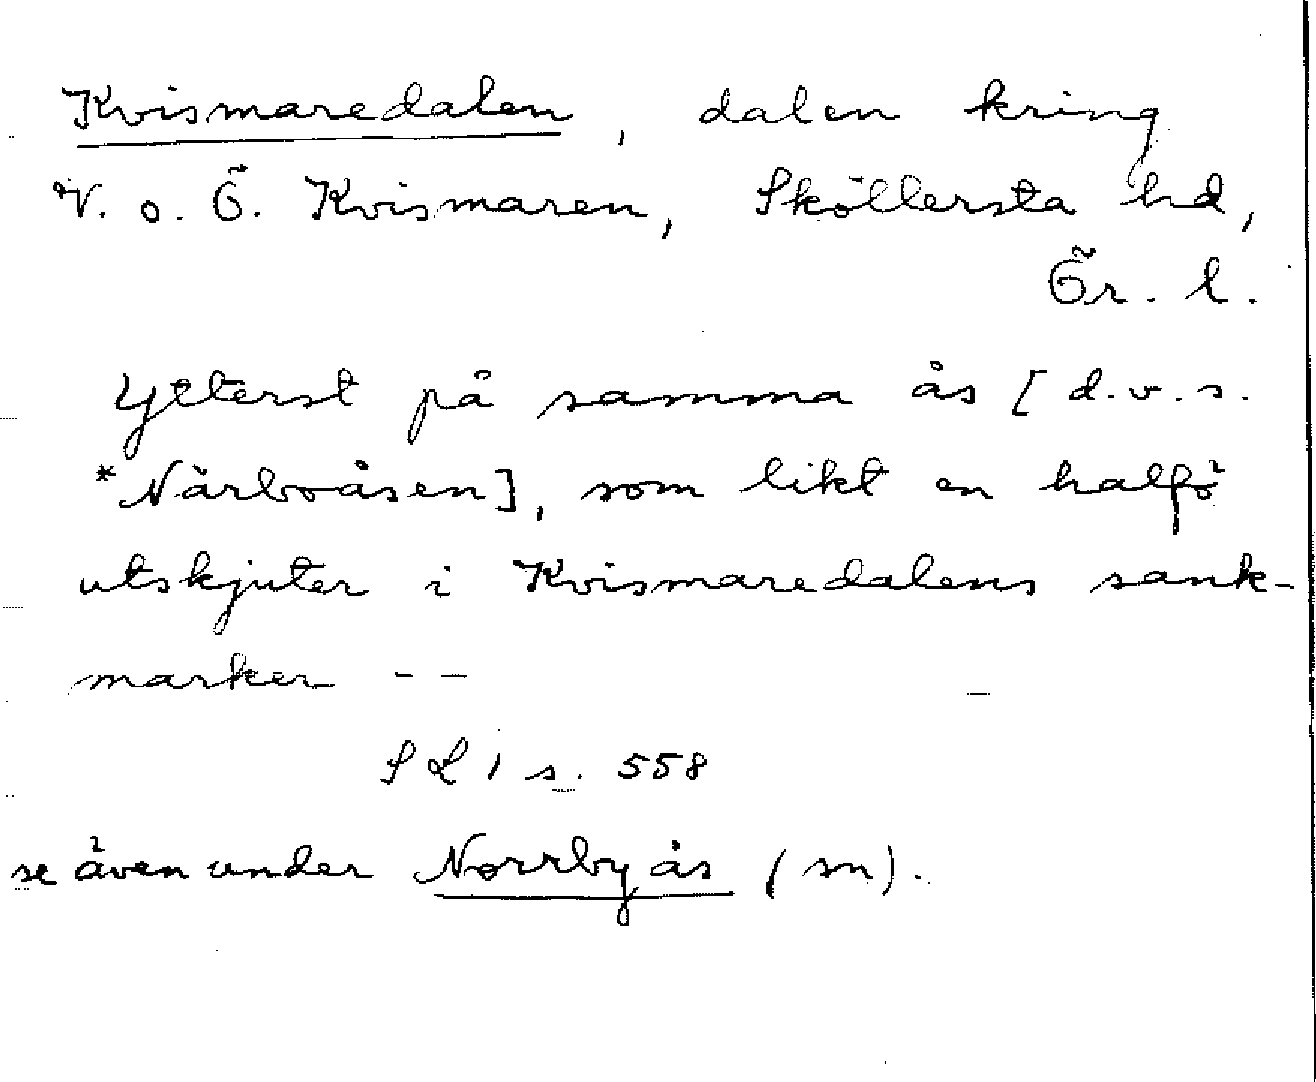 Kvismaredalen, dalen kring
V. o. Ö. Kvismaren, Sköllersta hd,
Ör. l.
Ytterst på samma ås [d.v.s.
*Närboåsen], som likt en halfö
utskjuter i Kvismaredalens sank-
marker --
SL 1 s. 558
se även under Norrbyås (sn).